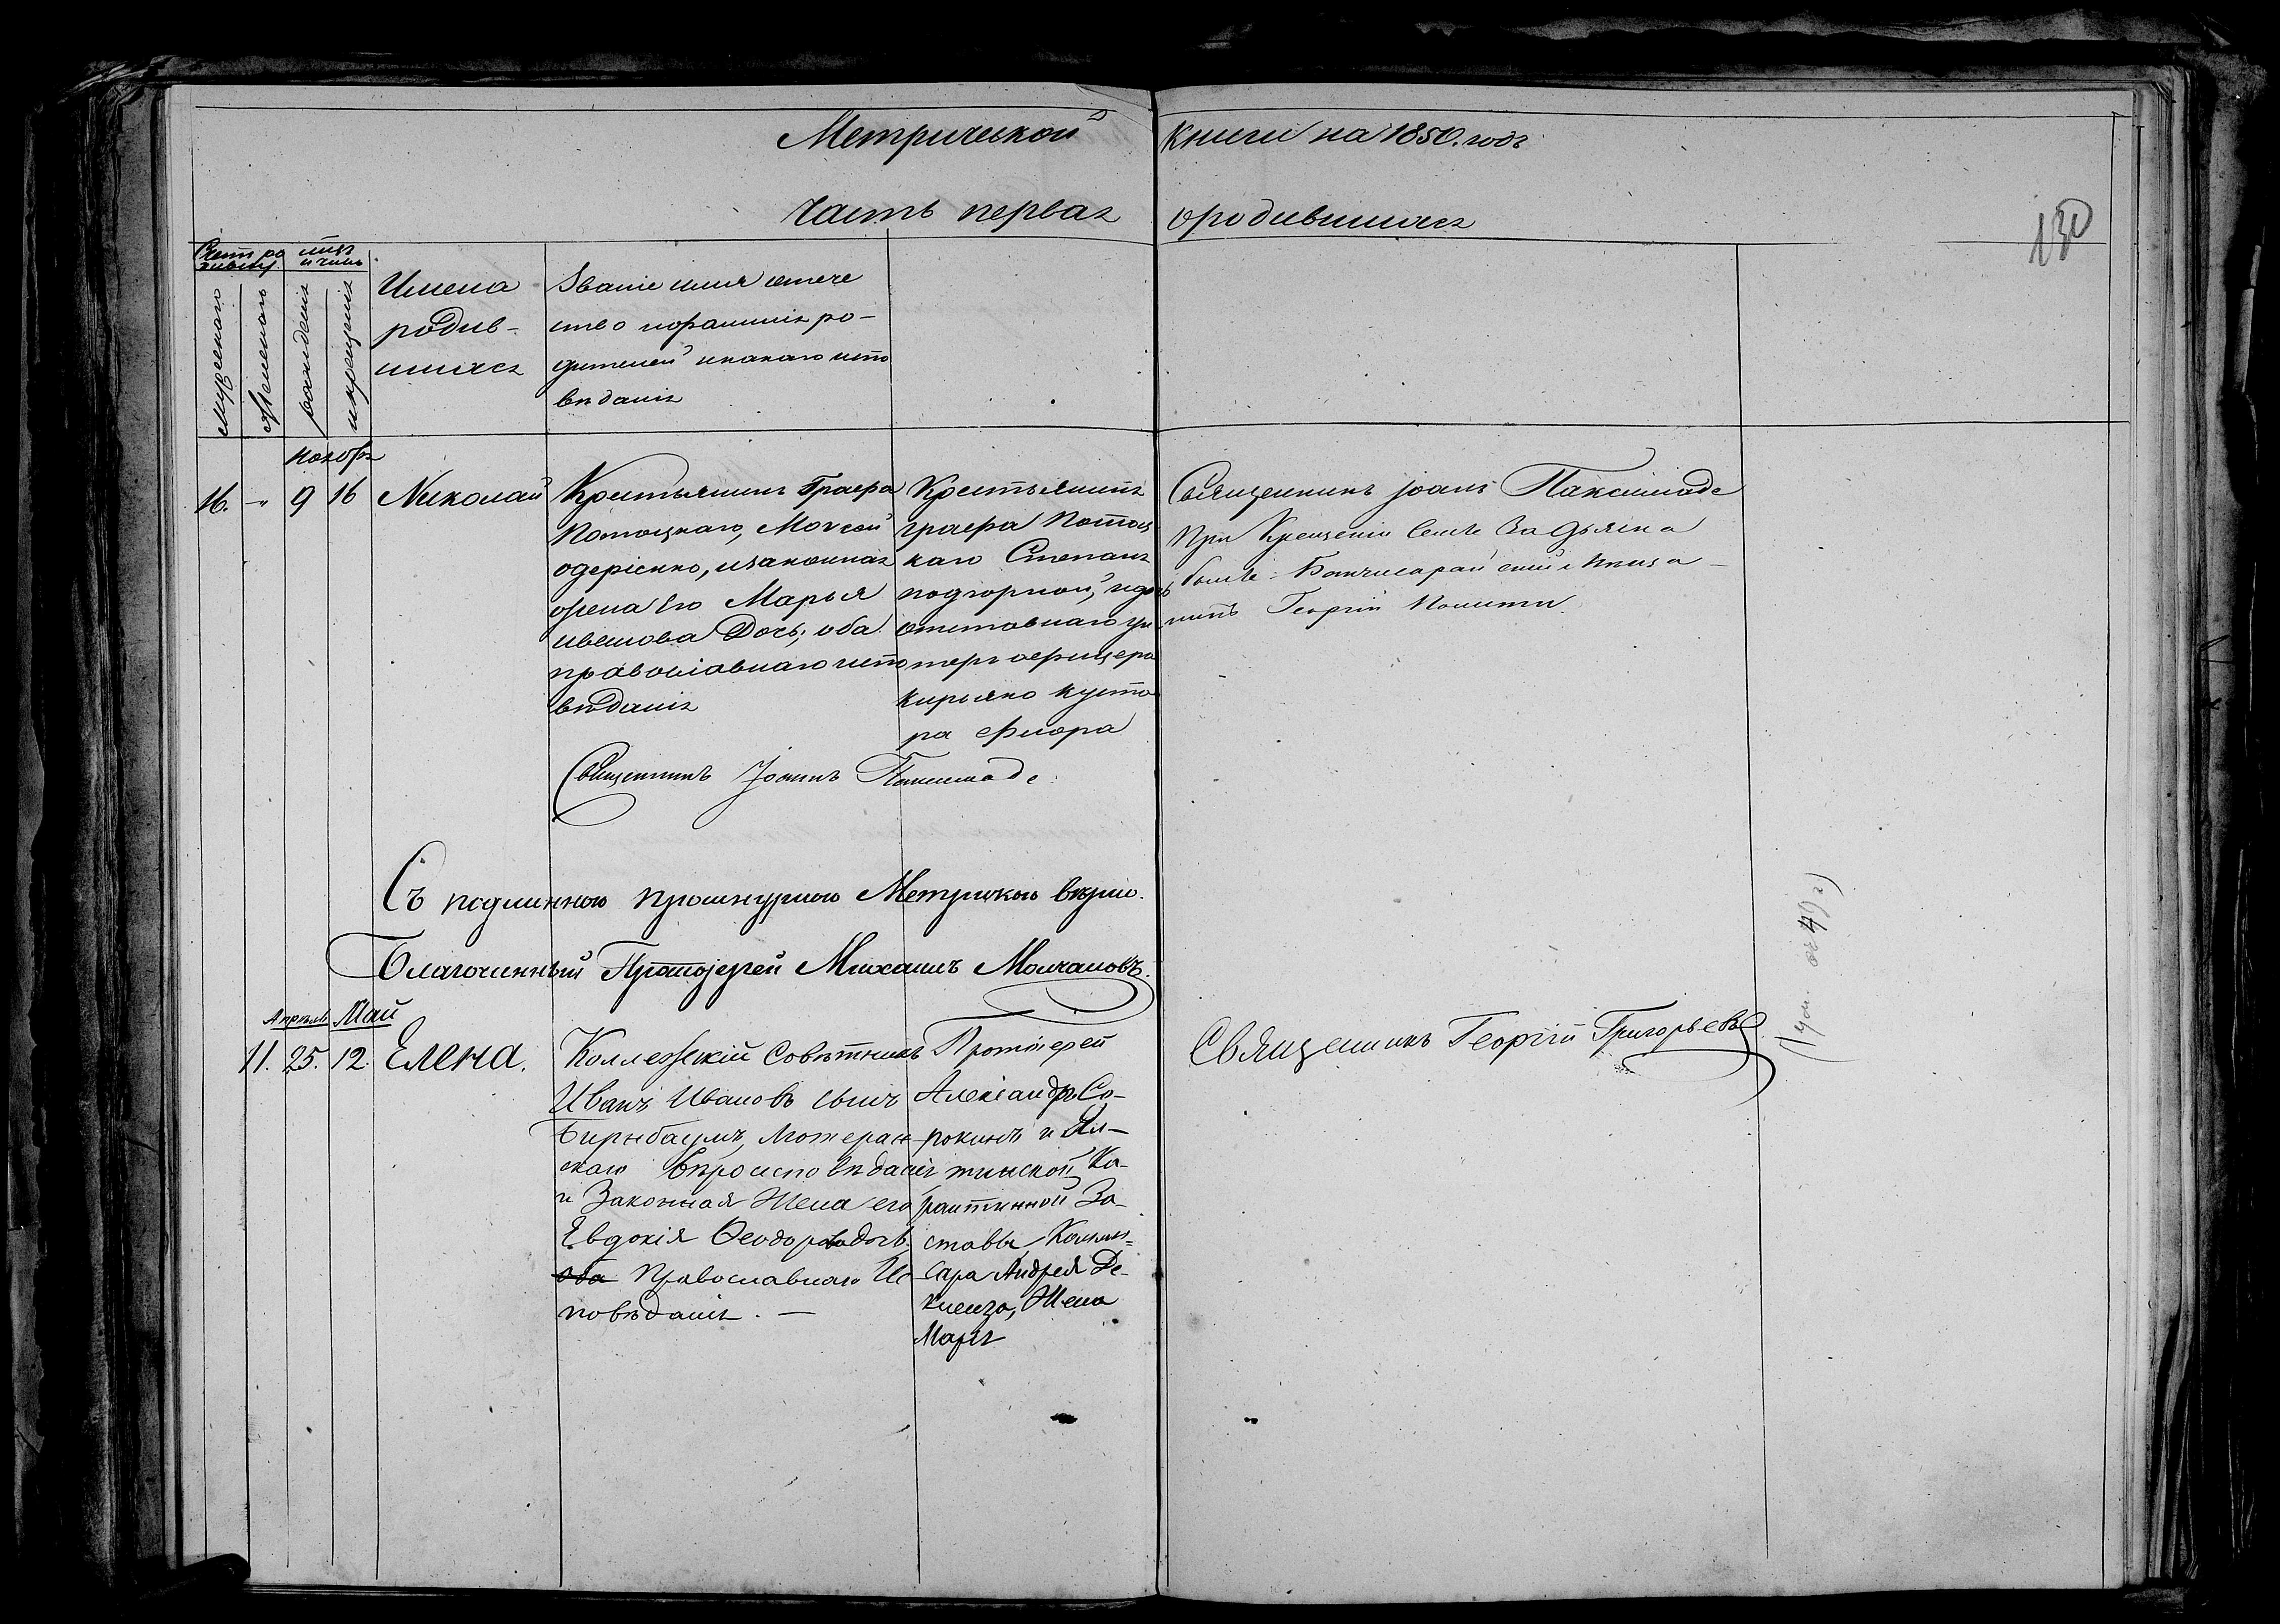 Метрической книги на 1850. годъ
Часть первая о родившихся
130
Счетъ ро
мѣс.
и число
мужескаго
женскаго
рожденія
и крещенія
Имена
родив-
шихся
Званіе имя отече
ство и фамилія ро-
дителей и какаго испо
вѣданія
Ноября
16. -„ 9 16 Николай
Крестьянинъ Графа
Потоцкаго, Мочсей
одерієнко, и законная
жена Его Марья
иванова Дочь; оба
православнаго испо
вѣданія
Крестьянинъ
графа Потоц
каго Степанъ
подгорной, и дочь
отставнаго ун
теръ офицера
кирьяко куста
ра Флора
Священникъ Іоанъ Паксимаде
При Крещеніи Вмѣсте За Дьячка
былъ Бахчисарайский
нинъ Георгій
Священникъ Іоаннъ Паксимаде
Съ подлинною прошнурною Метрическою вѣрно.
Благочинный Протоіерей Михаилъ Молчановъ.
Апрѣль Май
11. 25. 12. Елена.
Коллежскій Совѣтникъ
Иванъ Ивановъ сынъ
Бирнбаумъ, Лютеран-
скаго Вѣроисповѣданія
и Законная Жена его
Евдокія Ѳеодорова дочь
оба Православнаго Ис
повѣданія. —
Протоіерей
Александръ Со-
рокинъ и Ял-
тинской Ка-
рантинной За-
ставы Комми=
сара Андрея Де-
Жена
Марія
Священникъ Георгій Григорьевъ